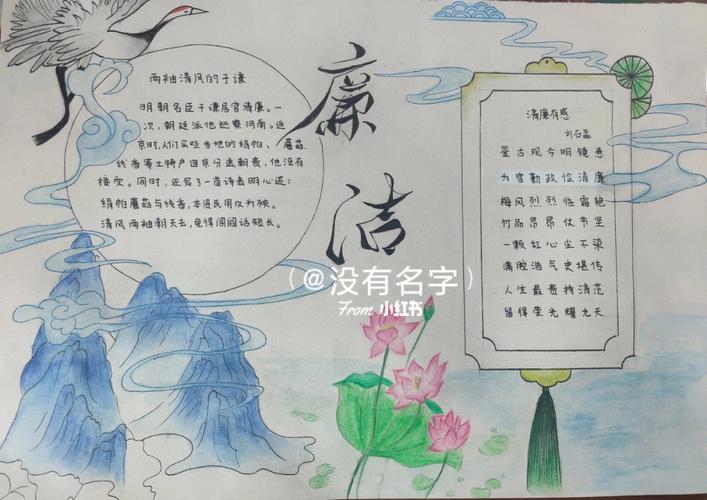 两袖清风的于谦
明朝名臣于谦居官清廉。一
次，朝廷派他巡察河南。返
京时,人们买些当地的绢帕、蘑菇、
线香等土特产回京分送朝贵，他没有
接受。同时，还写了一首诗表明心迹：
绢帕蘑菇与线香，本资民用反为殃。
清风两袖朝天去，免得闾阎话短长。
廉
洁
清廉有感
刘石磊
鉴古观今明镜悬
为官勤政俭清廉
梅风烈烈临霜艳
竹品昂昂仗节坚
一颗红心尘不染
满腔浩气史堪传
人生最贵持清范
留得荣光耀九天
（@没有名字）
From 小红书